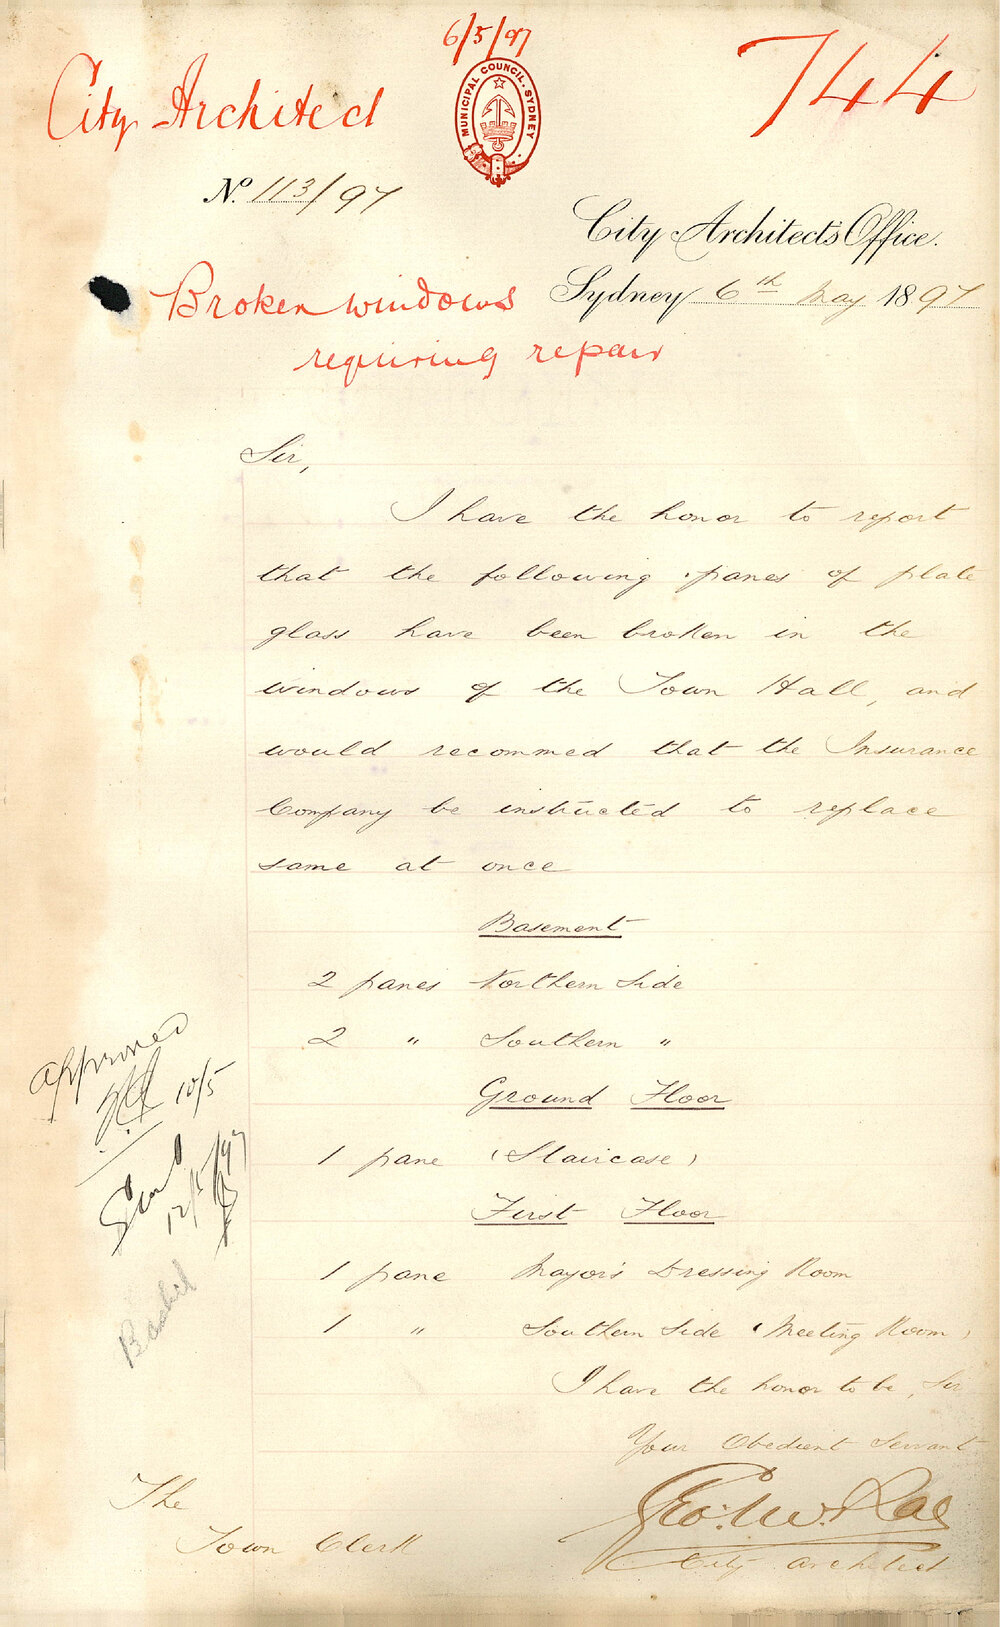 6/5/97
City Architect
744
MUNICIPAL COUNCIL. SYDNEY
No. 113/97
City Architect's Office.
Sydney 6th May 1897
Broken windows
requiring repair
Sir,
I have the honor to report
that the following panes of plate
glass have been broken in the
windows of the Town Hall, and
would recommed that the Insurance
Company be instructed to replace
same at once
Basement
2 panes Northern Side
2 " Southern "
Ground Floor
1 pane (Staircase)
First Floor
1 pane Mayor's Dressing Room
1 " Southern Side (Meeting Room)
I have the honor to be, Sir
Your Obedient Servant
Geo. McRae
City Architect
The
Town Clerk
Approved
10/5
12/5/97